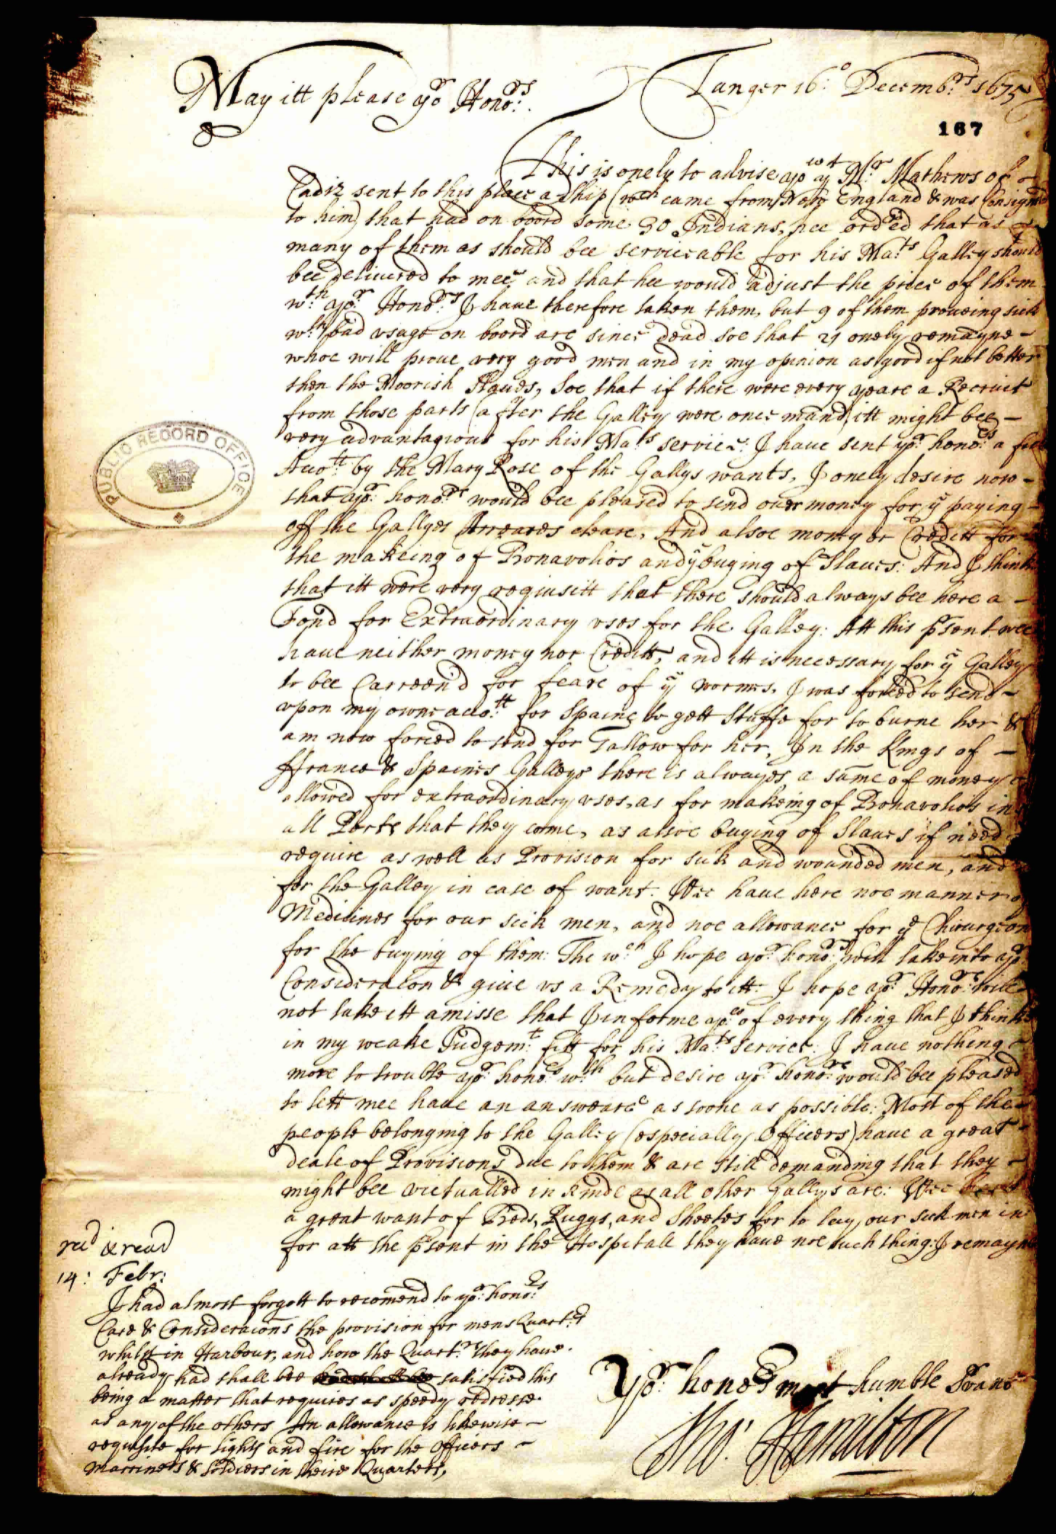 May itt please yor Honors:
Tanger 16o: Decembrs 1675
167
This is onely to advise yo wt yt Mr: Mathews of
Cadiz sent to this place a ship (wch came from New England & was Consign
to him) that had on bord some 30 Indians, hee orded that as
many of them as should bee serviceable for his Mats Galley should
bee delivered to mee, and that hee would adjust the price of them
wth yor Honors I have therefore taken them, but 9 of them proveing sick
wth bad usage on boord are since dead soe that 21 onely remayne
whoe will prove very good men and in my opinion as good if not better
then the Moorish Slaves, Soe that if there were every yeare a Recruit
from those parts (after the Galley were once mand) itt might bee
very advantagious for his Mats service. I have sent yor: honors a full
Accott by the Mary Rose of the Gallys wants, I onely desire now
that yor: honors would bee pleased to send over money for ye paying
off the Gallyes Arreares cleare, And alsoe money or Creditt for
the makeing of Bonavolios and ye buying of Slaves: And I think
that itt were very requisitt that there should always bee here a
Fond for Extraordinary uses for the Galley: Att this psent wee
have neither money nor Creditt, and itt is necessary for ye Galley
to bee Carreen'd for feare of ye wormes, I was forced to send
upon my owne accott for Spaine to gett stuffe for to burne her &
am now forced to send for Tallow for her, In the Kings of
ffrance & Spaines Galleys there is alwayes a sume of money
allowed for extraordinary uses, as for makeing of Bonavolios in
all Ports that they come, as alsoe buying of Slaves if need
require as well as Provision for sick and wounded men, and
for the Galley in case of want: Wee have here noe manner of
Medicines for our sick men, and noe allowance for ye Chirurgeon
for the buying of them: The wch I hope yor: honors will take into yor
Consideracon & give us a Remedy to itt: I hope yor Honors will
not take itt amisse that I informe yo of every thing that I thinke
in my weake Judgemt fitt for his Mats Service: I have nothing
more to trouble yor: honors wth but desire yor: honors would bee pleased
to lett mee have an answeare as soone as possible: Most of the
people belonging to the Galley (especially Officers) have a great
deale of Provisions due to them & are still demanding that they
might bee victualled in kinde as all other Gallys are: Wee have
a great want of Beds, Ruggs, and Sheetes for to lay our sick men in
for att the psent in the Hospitall they have noe such thing: I remayne
recd & read
14: Febr:
I had almost forgott to recomend to yor: honors
Care & Consideracons the provision for mens Quartrs
whilst in Harbour, and how the Quartrs They have
already had shall bee satisfied this
being a matter that requires as speedy redresse
as any of the others An allowance is likewise
requisite for lights and fire for the Officers
Marriners & Soldiers in theire Quarters,
Yor: honors most humble Servant
Tho: Hamilton
PUBLIC RECORD OFFICE